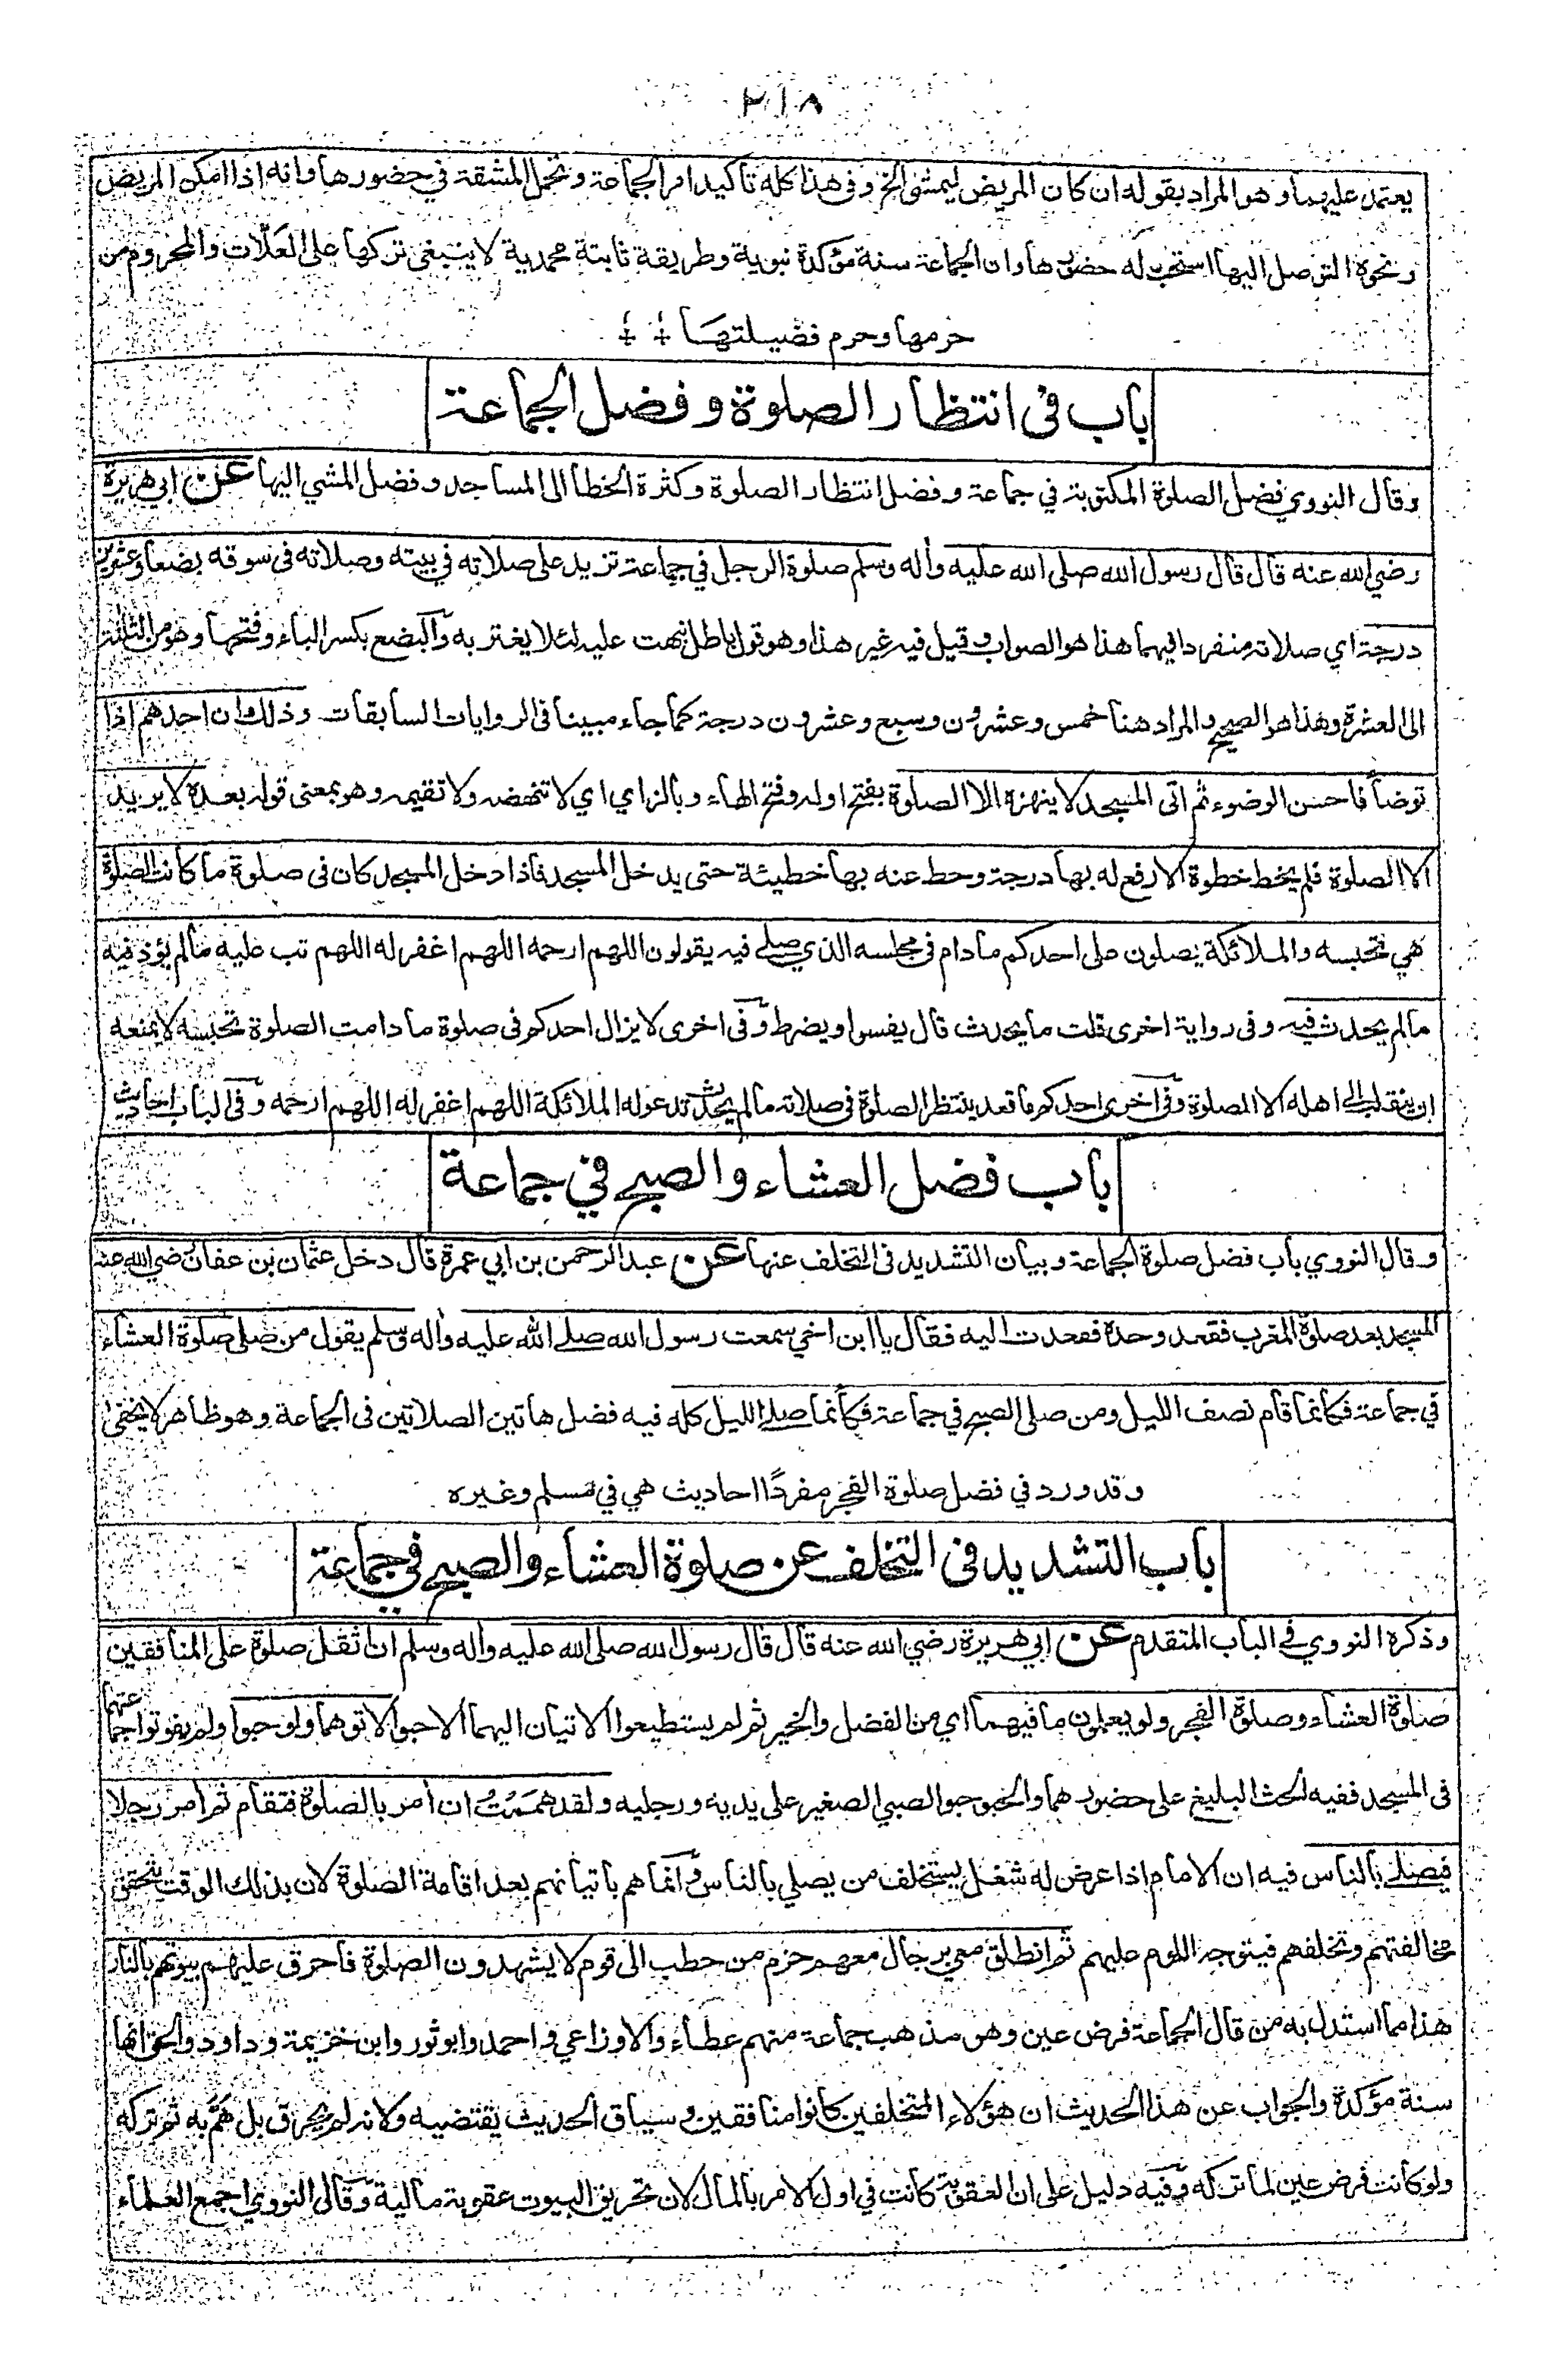 ٢١٨
يعتمد عليهما وهو المراد بقوله ان كان المريض ليمشي الخ وفى هذا كله تأكيد امر الجماعة وتحمل المشقة في حضورها وانه اذا امكن المريض
ونحوه التوصل اليها استحب له حضورها وان الجماعة سنة مؤكدة نبوية وطريقة ثابتة محمدية لا ينبغي تركها على العلات والمحروم من
حرمها وحرم فضيلتها
باب فى انتظار الصلوة وفضل الجماعة
وقال النووي فضل الصلوة المكتوبة في جماعة وفضل انتظار الصلوة وكثرة الخطا الى المساجد وفضل المشي اليها عن ابي هريرة
رضي الله عنه قال قال رسول الله صلى الله عليه وأله وسلم صلوة الرجل في جماعة تزيد على صلاته في بيته وصلاته فى سوقه بضعا وعشرين
درجة اي صلاته منفردا فيهما هذا هو الصواب وقيل فيه غير هذا وهو قول باطل نبهت عليه لئلا يغتر به والبضع بكسر الباء وفتحها وهو من الثلثة
الى العشرة وهذا هو الصحيح والمراد هنا خمس وعشرون وسبع وعشرون درجة كما جاء مبينا فى الروايات السابقات وذلك ان احدهم اذا
توضأ فاحسن الوضوء ثم اتى المسجد لا ينهزه الا الصلوة بفتح اوله وفتح الهاء وبالزاي اي لا تنهضه ولا تقيمه وهو بمعنى قوله بعده لا يريد
الا الصلوة فلم يخط خطوة الا رفع له بها درجة وحط عنه بها خطيئة حتى يدخل المسجد فاذا دخل المسجد كان فى صلوة ما كانت الصلوة
هي تحبسه والملائكة يصلون على احدكم ما دام فى مجلسه الذي صلى فيه يقولون اللهم ارحمه اللهم اغفر له اللهم تب عليه مالم يؤذ فيه
مالم يحدث فيه وفى رواية اخرى قلت ما يحدث قال يفسو او يضرط وفى اخرى لا يزال احدكم فى صلوة ما دامت الصلوة تحبسه لا يمنعه
ان ينقلب الى اهله الا الصلوة وفي اخرى احدكم ما قعد ينتظر الصلوة فى صلاته مالم يحدث تدعو له الملائكة اللهم اغفر له اللهم ارحمه وفى الباب احاديث
باب فضل العشاء والصبح في جماعة
وقال النووي باب فضل صلوة الجماعة وبيان التشديد فى التخلف عنها عن عبد الرحمن بن ابي عمرة قال دخل عثمان بن عفان رضي الله عنه
المسجد بعد صلوة المغرب فقعد وحده فقعدت اليه فقال يا ابن اخي سمعت رسول الله صلى الله عليه وأله وسلم يقول من صلى صلوة العشاء
في جماعة فكأنما قام نصف الليل ومن صلى الصبح في جماعة فكأنما صلى الليل كله فيه فضل هاتين الصلاتين فى الجماعة وهو ظاهر لا يخفى
وقد ورد في فضل صلوة الفجر مفردًا احاديث هي في مسلم وغيره
باب التشديد فى التخلف عن صلوة العشاء والصبح في جماعة
وذكره النووي في الباب المتقدم عن ابي هريرة رضي الله عنه قال قال رسول الله صلى الله عليه وأله وسلم ان اثقل صلوة على المنافقين
صلوة العشاء وصلوة الفجر ولو يعلمون ما فيهما اي من الفضل والخير ثم لم يستطيعوا الاتيان اليهما الا حبوا لاتوهما ولو حبوا ولم يفوتوا جماعتهما
فى المسجد ففيه الحث البليغ على حضورهما والحبو حبو الصبي الصغير على يديه ورجليه ولقد هممت ان أمر بالصلوة فتقام ثم امر رجلا
فيصلي بالناس فيه ان الامام اذا عرض له شغل يستخلف من يصلي بالناس وانما هم باتيانهم بعد اقامة الصلوة لان بذلك الوقت يتحقق
مخالفتهم وتخلفهم فيتوجه اللوم عليهم ثم انطلق معي برجال معهم حزم من حطب الى قوم لا يشهدون الصلوة فأحرق عليهم بيوتهم بالنار
هذا مما استدل به من قال الجماعة فرض عين وهو مذهب جماعة منهم عطاء والاوزاعي واحمد وابو ثور وابن خزيمة وداود والحق انها
سنة مؤكدة والجواب عن هذا الحديث ان هؤلاء المتخلفين كانوا منافقين وسياق الحديث يقتضيه ولانه لم يحرق بل هَمَّ به ثم تركه
ولو كانت فرض عين لما تركه وفيه دليل على ان العقوبة كانت في اول الامر بالمال لان تحريق البيوت عقوبة مالية وقال النووي اجمع العلماء